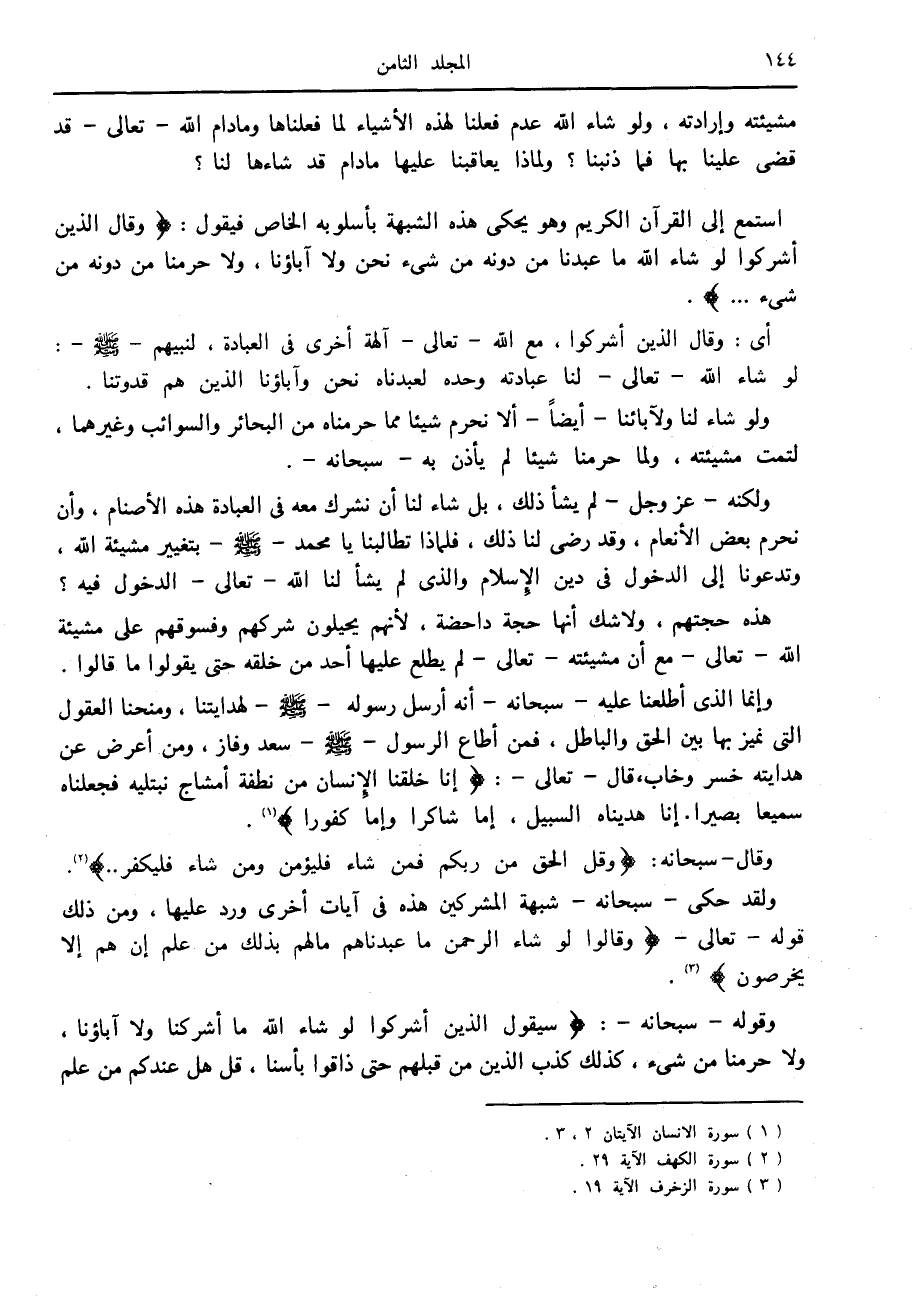 ١٤٤ المجلد الثامن
مشيئته وإرادته ، ولو شاء الله عدم فعلنا لهذه الأشياء لما فعلناها ومادام الله – تعالى – قد
قضى علينا بها فما ذنبنا ؟ ولماذا يعاقبنا عليها مادام قد شاءها لنا ؟
استمع إلى القرآن الكريم وهو يحكى هذه الشبهة بأسلوبه الخاص فيقول : ﴿ وقال الذين
أشركوا لو شاء الله ما عبدنا من دونه من شىء نحن ولا آباؤنا ، ولا حرمنا من دونه من
شىء ... ﴾ .
أى : وقال الذين أشركوا ، مع الله – تعالى – آلهة أخرى فى العبادة ، لنبيهم – ﷺ – :
لو شاء الله – تعالى – لنا عبادته وحده لعبدناه نحن وآباؤنا الذين هم قدوتنا .
ولو شاء لنا ولآبائنا – أيضاً – ألا نحرم شيئا مما حرمناه من البحائر والسوائب وغيرهما ،
لتمت مشيئته ، ولما حرمنا شيئا لم يأذن به – سبحانه – .
ولكنه – عز وجل – لم يشأ ذلك ، بل شاء لنا أن نشرك معه فى العبادة هذه الأصنام ، وأن
نحرم بعض الأنعام ، وقد رضى لنا ذلك ، فلماذا تطالبنا يا محمد – ﷺ – بتغيير مشيئة الله ،
وتدعونا إلى الدخول فى دين الإسلام والذى لم يشأ لنا الله – تعالى – الدخول فيه ؟
هذه حجتهم ، ولاشك أنها حجة داحضة ، لأنهم يحيلون شركهم وفسوقهم على مشيئة
الله – تعالى – مع أن مشيئته – تعالى – لم يطلع عليها أحد من خلقه حتى يقولوا ما قالوا .
وإنما الذى أطلعنا عليه – سبحانه – أنه أرسل رسوله – ﷺ – لهدايتنا ، ومنحنا العقول
التى نميز بها بين الحق والباطل ، فمن أطاع الرسول – ﷺ – سعد وفاز ، ومن أعرض عن
هدايته خسر وخاب،قال – تعالى – : ﴿ إنا خلقنا الإنسان من نطفة أمشاج نبتليه فجعلناه
سميعا بصيرا.إنا هديناه السبيل ، إما شاكرا وإما كفورا ﴾(١) .
وقال–سبحانه: ﴿وقل الحق من ربكم فمن شاء فليؤمن ومن شاء فليكفر..﴾(٢).
ولقد حكى – سبحانه – شبهة المشركين هذه فى آيات أخرى ورد عليها ، ومن ذلك
قوله – تعالى – ﴿ وقالوا لو شاء الرحمن ما عبدناهم مالهم بذلك من علم إن هم إلا
يخرصون ﴾ (٣) .
وقوله – سبحانه – : ﴿ سيقول الذين أشركوا لو شاء الله ما أشركنا ولا آباؤنا ،
ولا حرمنا من شىء ، كذلك كذب الذين من قبلهم حتى ذاقوا بأسنا ، قل هل عندكم من علم
( ١ ) سورة الانسان الآيتان ٢ ، ٣ .
( ٢ ) سورة الكهف الآية ٢٩ .
( ٣ ) سورة الزخرف الآية ١٩ .